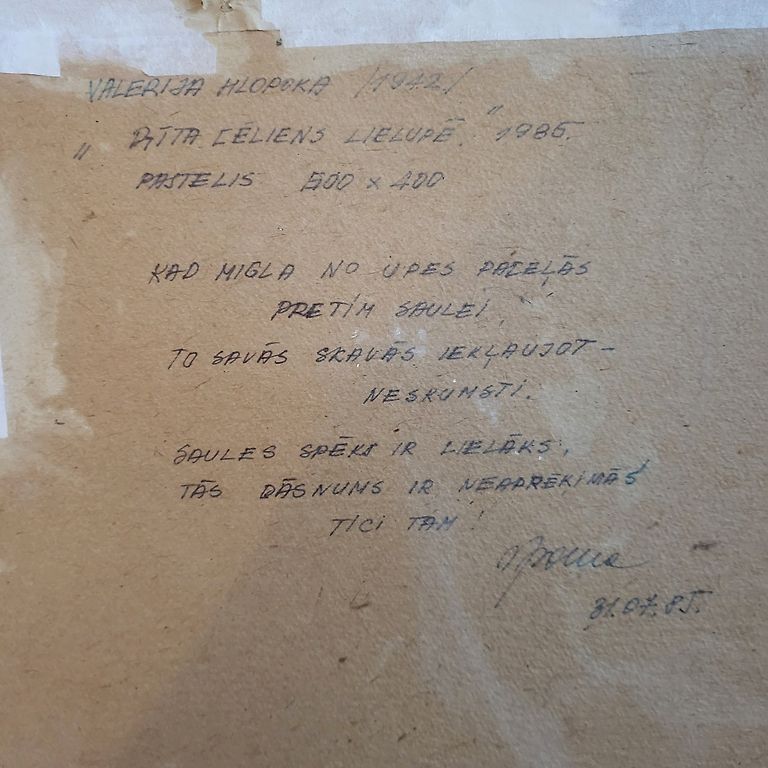 VALERIJA HLOPOKA /1942/
„ RĪTA CĒLIENS LIELUPĒ. " 1985.
PASTELIS 500 x 400
KAD MIGLA NO UPES PACEĻAS
PRETIM SAULEI
TO SAVĀS SKAVĀS IEKĻAUJOT –
NESKUMSTI.
SAULES SPĒKS IR LIELĀKS,
TĀS DĀSNUMS IR NEAPRĒĶINĀMS
TICI TAM !
31.07.85.